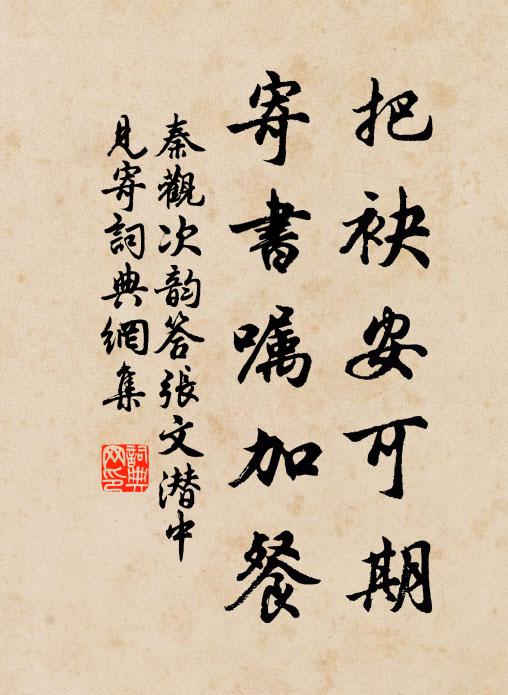 把袂安可期
寄書嘱加餐
秦觀次韵答張文潜中
見寄詞典網集
詞典网印